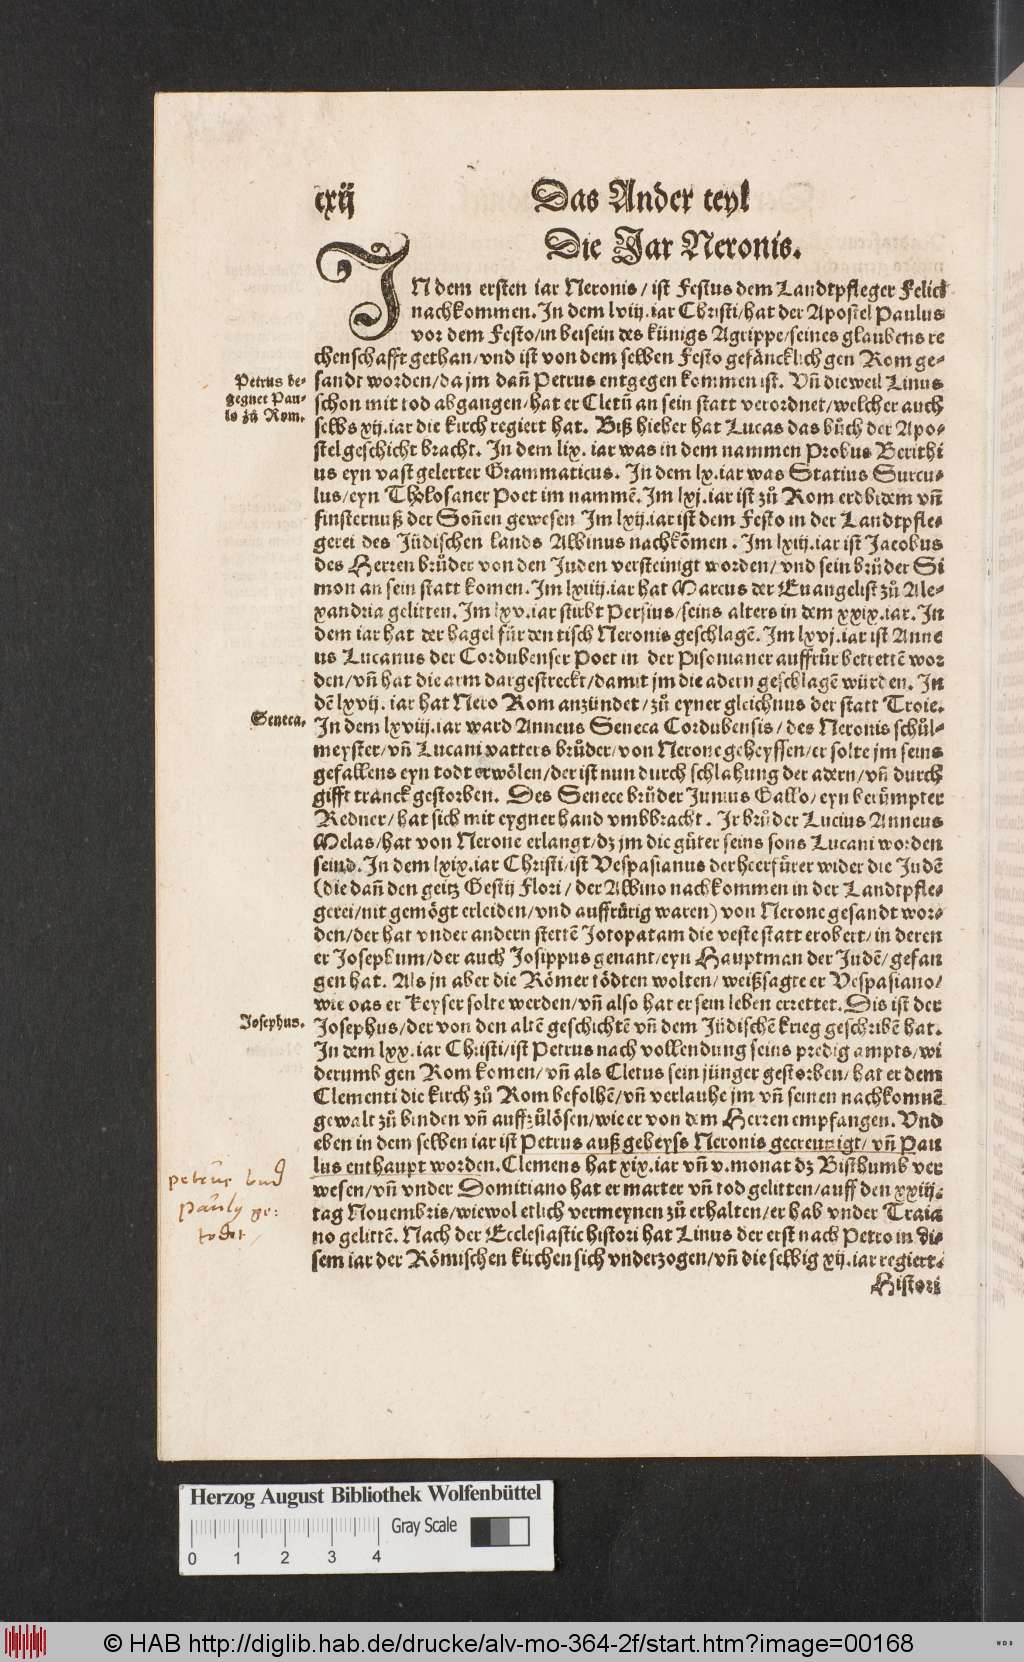 cxij
Das Ander teyl
Die Jar Neronis.
IN dem ersten iar Neronis / ist Festus dem Landtpfleger Felici
nachkommen. In dem lviij. iar Christi / hat der Apostel Paulus
vor dem Festo / in beisein des künigs Agrippe / seines glaubens re
chenschafft gethan / vnd ist von dem selben Festo gefäncklich gen Rom ge⸗
sandt worden / da jm dañ Petrus entgegen kommen ist. Vñ dieweil Linus
schon mit tod abgangen / hat er Cletũ an sein statt verordnet / welcher auch
selbs xij. iar die kirch regiert hat. Biß hieher hat Lucas das bůch der Apo⸗
stel geschicht bracht. In dem lix. iar was in dem nammen Probus Berithi
us eyn vast gelerter Grammaticus. In dem lx. iar was Statius Surcu⸗
lus / eyn Tholosaner Poet im nammẽ. Im lxj. iar ist zů Rom erdbidem vñ
finsternuß der Soñen gewesen Im lxij. iar ist dem Festo in der Landtpfle⸗
gerei des Jüdischen lands Albinus nachkõmen. Im lxiij. iar ist Jacobus
des Herren brůder von den Juden versteinigt worden / vnd sein brůder Si
mon an sein statt komen. Im lxiiij. iar hat Marcus der Euangelist zů Ale⸗
xandria gelitten. Im lxv. iar stirbt Persius / seins alters in dem xxix. iar. In
dem iar hat der hagel für den tisch Neronis geschlagẽ. Im lxvj. iar ist Anne
us Lucanus der Cordubenser Poet in der Pisonianer auffrůr bettettẽ wor
den / vñ hat die arm dargestreckt / damit jm die adern geschlagẽ würden. In
dẽ lxvij. iar hat Nero Rom anzündet / zů eyner gleichnus der statt Troie.
In dem lxviij. iar ward Anneus Seneca Cordubensis / des Neronis schůl⸗
meyster / vñ Lucani vatters brůder / von Nerone geheyssen / er solte jm seins
gefallens eyn todt erwölen / der ist nun durch schlahung der adern / vñ durch
gifft tranck gestorben. Des Senece brůder Junius Gallo / eyn berümpter
Redner / hat sich mit eygner hand vmbbracht. Ir brůder Lucius Anneus
Melas / hat von Nerone erlangt / dz jm die gůter seins sons Lucani worden
seind. In dem lxix. iar Christi / ist Vespasianus der heerfürer wider die Judẽ
(die dañ den geitz Gestij Flori / der Albino nachkommen in der Landtpfle⸗
gerei / nit gemögt erleiden / vnd auffrürig waren) von Nerone gesandt wor⸗
den / der hat vnder andern stettẽ Jotopatam die veste statt erobert / in deren
er Josephum / der auch Josippus genant / eyn Hauptman der Judẽ / gefan
gen hat. Als jn aber die Römer tödten wolten / weißsagte er Vespasiano /
wie das er Keyser solte werden / vñ also hat er sein leben errettet. Dis ist der
Josephus / der von den altẽ geschichtẽ vñ dem Jüdischẽ krieg geschribẽ hat.
In dem lxx. iar Christi / ist Petrus nach vollendung seins predig ampts / wi
derumb gen Rom komen / vñ als Cletus sein jünger gestorben / hat er dem
Clementi die kirch zů Rom befolhẽ / vñ verlauhe jm vñ seinen nachkomnẽ
gewalt zů binden vñ auffzůlösen / wie er von dem Herren empfangen. Vnd
eben in dem selben iar ist Petrus auß geheyss Neronis gecreutzigt / vñ Pau
lus enthaupt worden. Clemens hat xix. iar vñ v. monat dz Bisthumb ver
wesen / vñ vnder Domitiano hat er marter vñ tod gelitten / auff den xxiij.
tag Nouembris / wiewol etlich vermeynen zů erhalten / er hab vnder Traia
no gelittẽ. Nach der Ecclesiastic histori hat Linus der erst nach Petro in di⸗
sem iar der Römischen kirchen sich vnderzogen / vñ die selbig xij. iar regiert.
Histori
Petrus be⸗
gegnet Pau⸗
lo zů Rom.
Seneca.
Josephus.
petrus vnd
pauly ge:
todet /
Herzog August Bibliothek Wolfenbüttel
Gray Scale
0 1 2 3 4
© HAB http://diglib.hab.de/drucke/alv-mo-364-2f/start.htm?image=00168